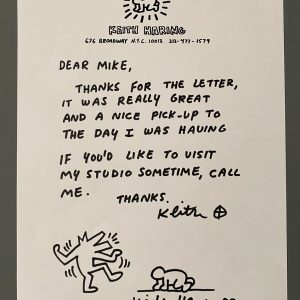 KEITH HARING
676 BROADWAY N.Y.C. 10012 212-477-1579
DEAR MIKE,
THANKS FOR THE LETTER,
IT WAS REALLY GREAT
AND A NICE PICK-UP TO
THE DAY I WAS HAVING
IF YOU'D LIKE TO VISIT
MY STUDIO SOMETIME, CALL
ME.
THANKS,
Keith